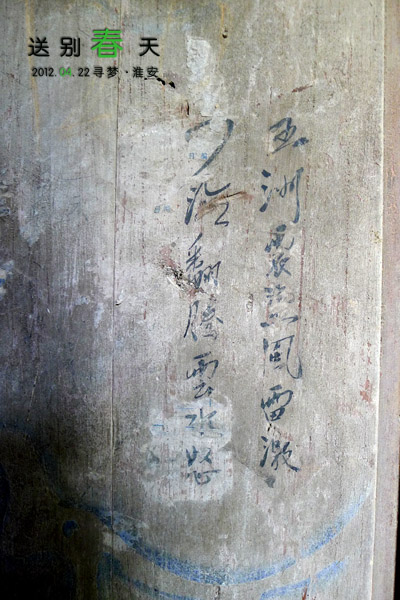 送别春天
2012.04.22寻梦·淮安
五洲震荡風雷激
四海翻腾雲水怒